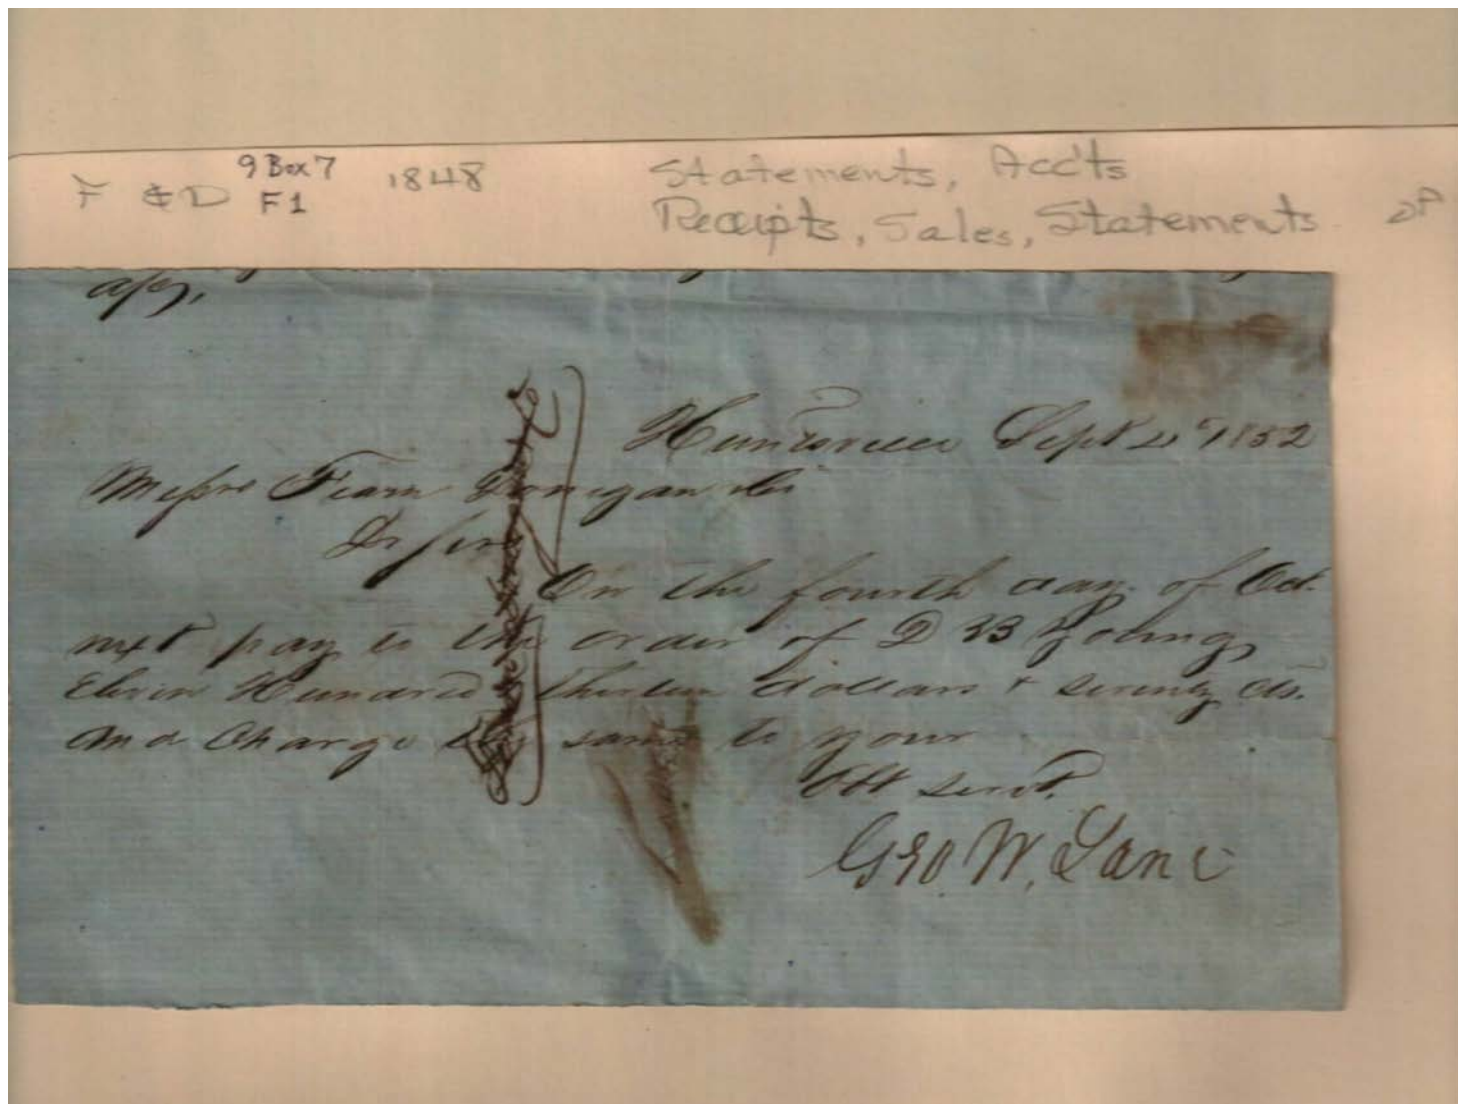 F & D 9 Box 7 1848 Statements, Acc'ts
F1 Receipts, Sales, Statements
Huntsville Sept 1852
Messrs Fearn Donegan & Co
Dr Sirs
On the fourth day of Oct.
next pay to the order of D B Young
Eleven Hundred thirteen dollars & seventy cts.
and Charge the same to your
Obt Servt.
Geo. W. Lane